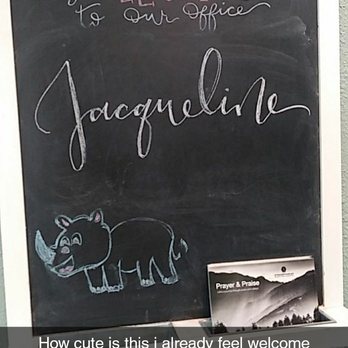 to our office
Jacqueline
Prayer & Praise
How cute is this i already feel welcome